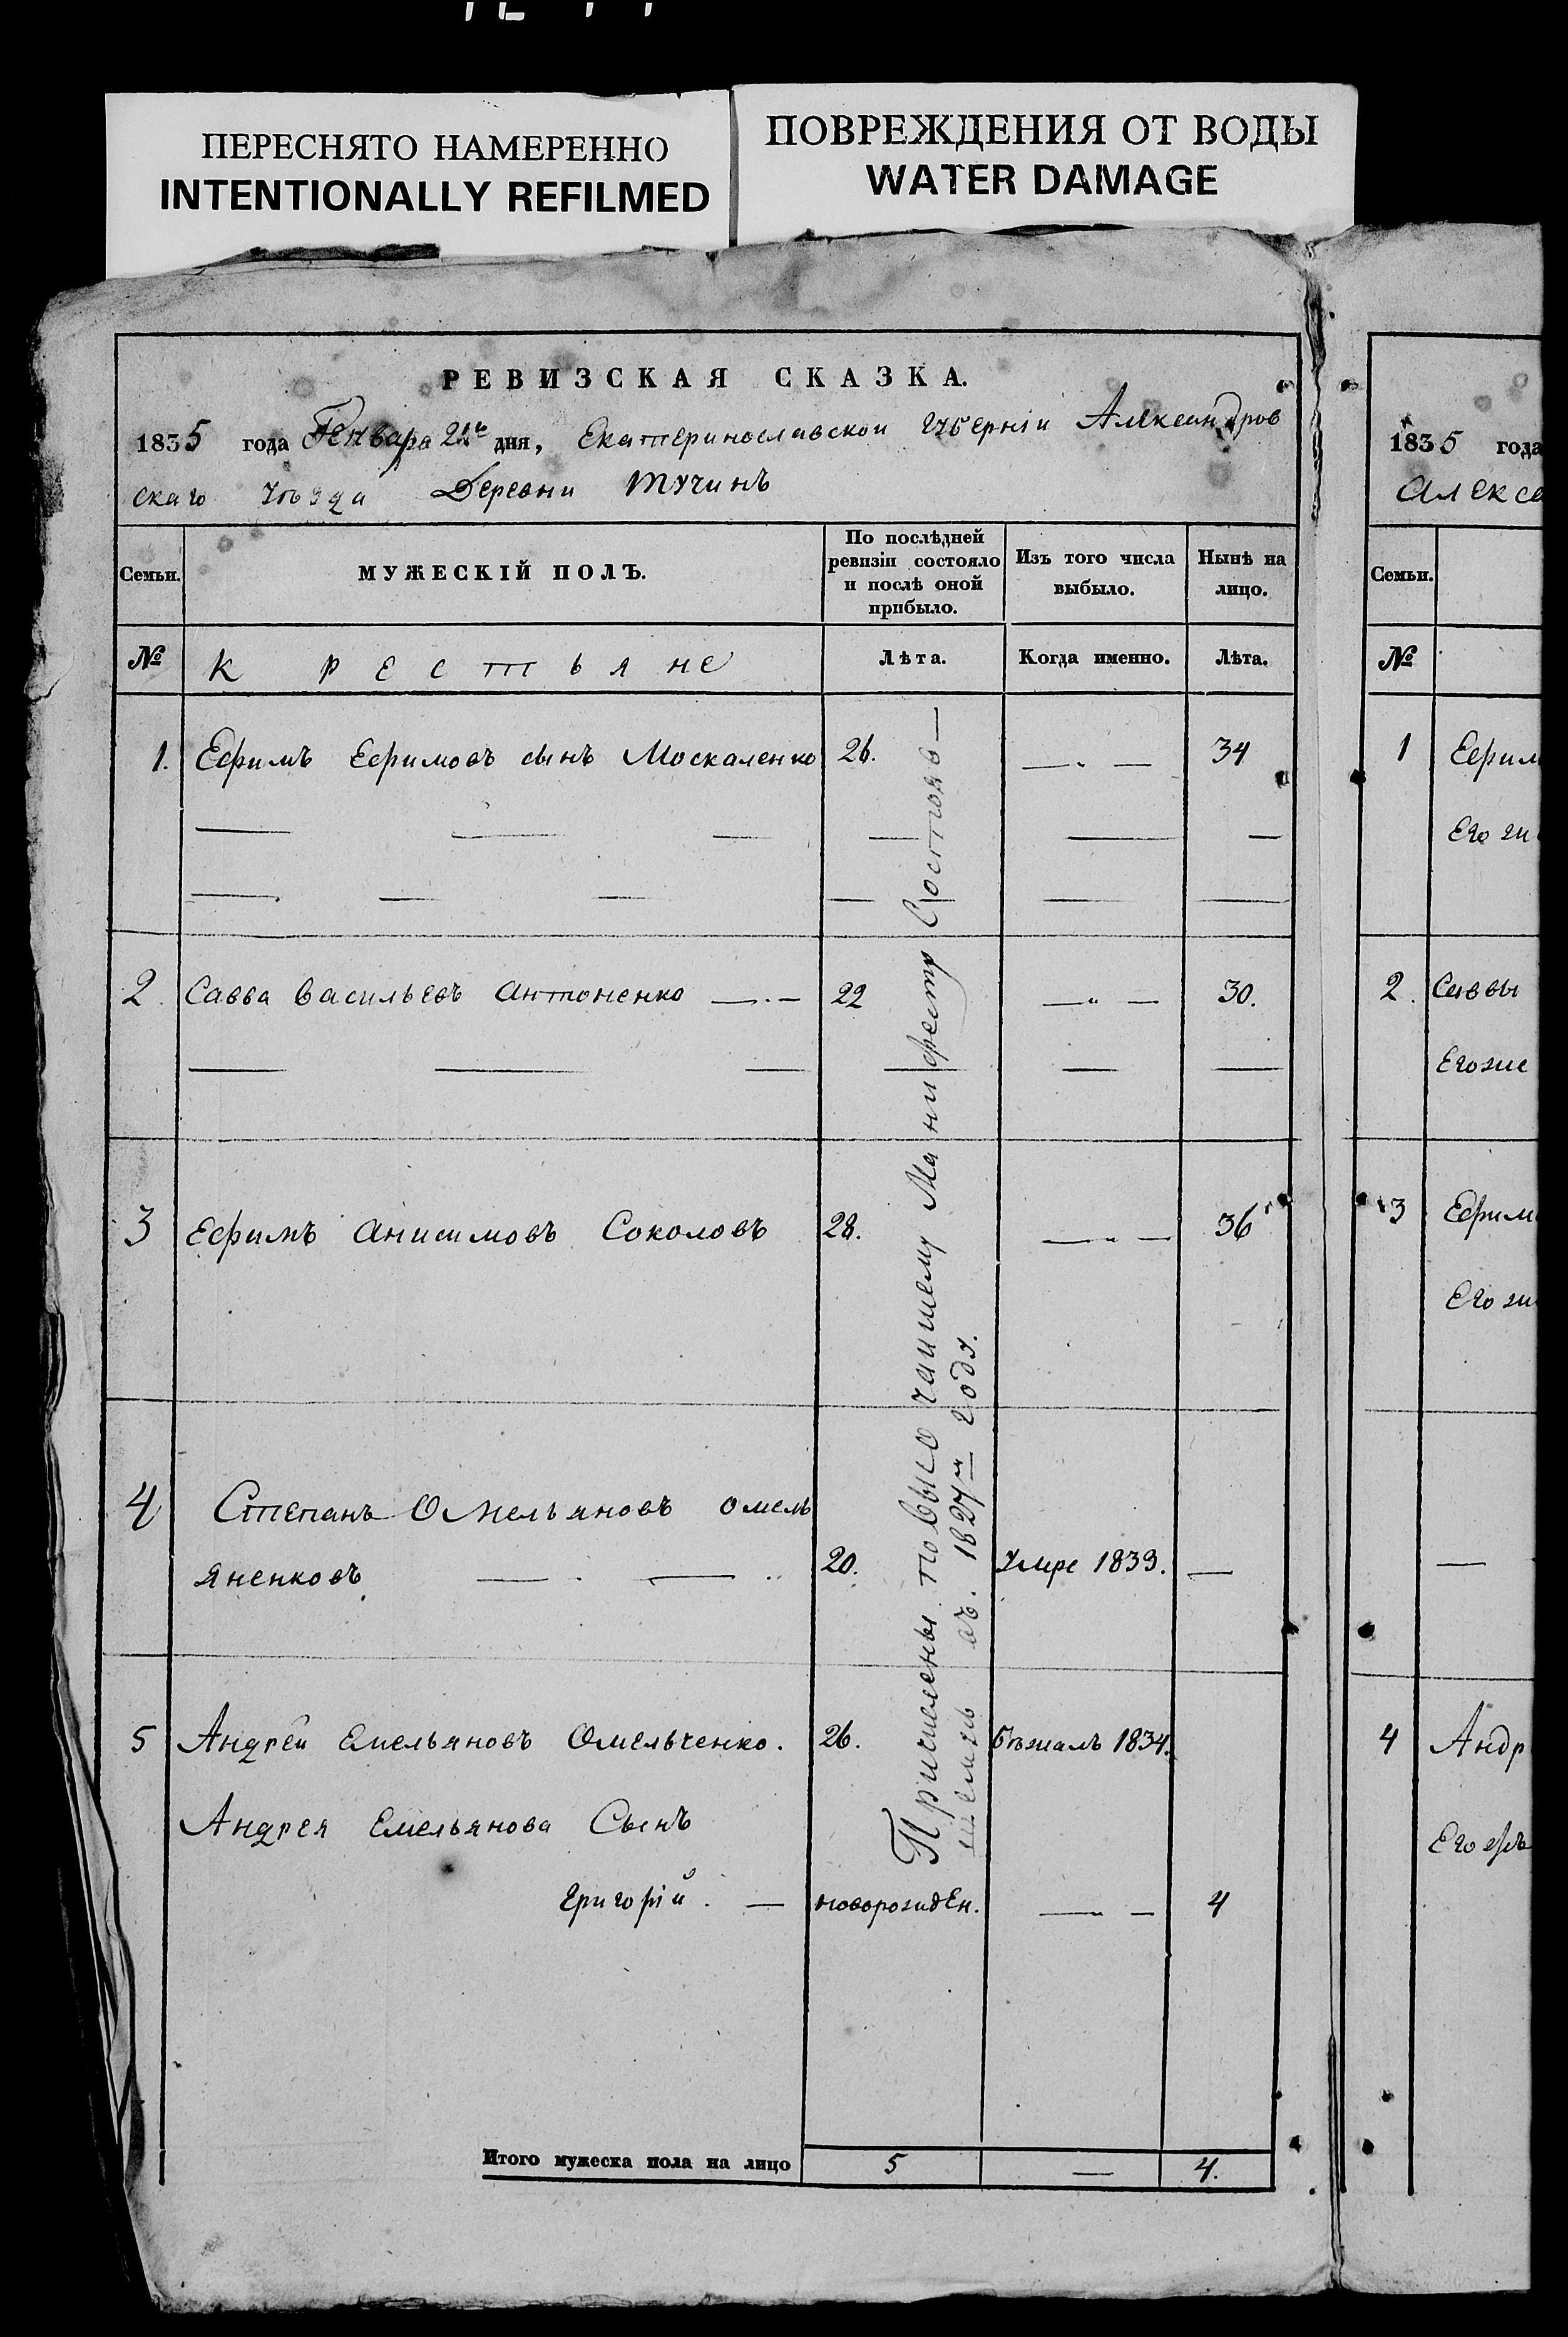 ПЕРЕСНЯТО НАМЕРЕННО
INTENTIONALLY REFILMED
ПОВРЕЖДЕНИЯ ОТ ВОДЫ
WATER DAMAGE
РЕВИЗСКАЯ СКАЗКА.
1835 года Генваря дня, Екатеринославской Губерніи Александров
скаго уѣзда Деревни Тучинъ
Семьи.
МУЖЕСКІЙ ПОЛЪ.
По послѣдней ревизіи состояло и послѣ оной прибыло.
Изъ того числа выбыло.
Нынѣ на лицо.
№ Крестьяне Лѣта. Когда именно. Лѣта.
1. Ефимъ Ефимовъ сынъ Москаленко 26. — „ — 34
2. Савва Васильевъ Антоненко — . — 22 — „ — 30.
3 Ефимъ Анисимовъ Соколовъ 28. — „ — 36
4 Степанъ Омельяновъ Омель
яненковъ 20. Умре 1833. —
5 Андрей Емельяновъ Омельченко. 26. бѣжалъ 1834.
Андрея Емельянова Сынъ
Григорій. — новорожден. — „ — 4
Причислены по Высочайшему Манифесту Состояв—
шемусь въ. 1827м году.
Итого мужеска пола на лицо 5 — 4.
1835 года
Алексе
Семьи.
№
1 Ефим
Его
2. Саввы
Его же
3 Ефим
Его
4 Андр
Его